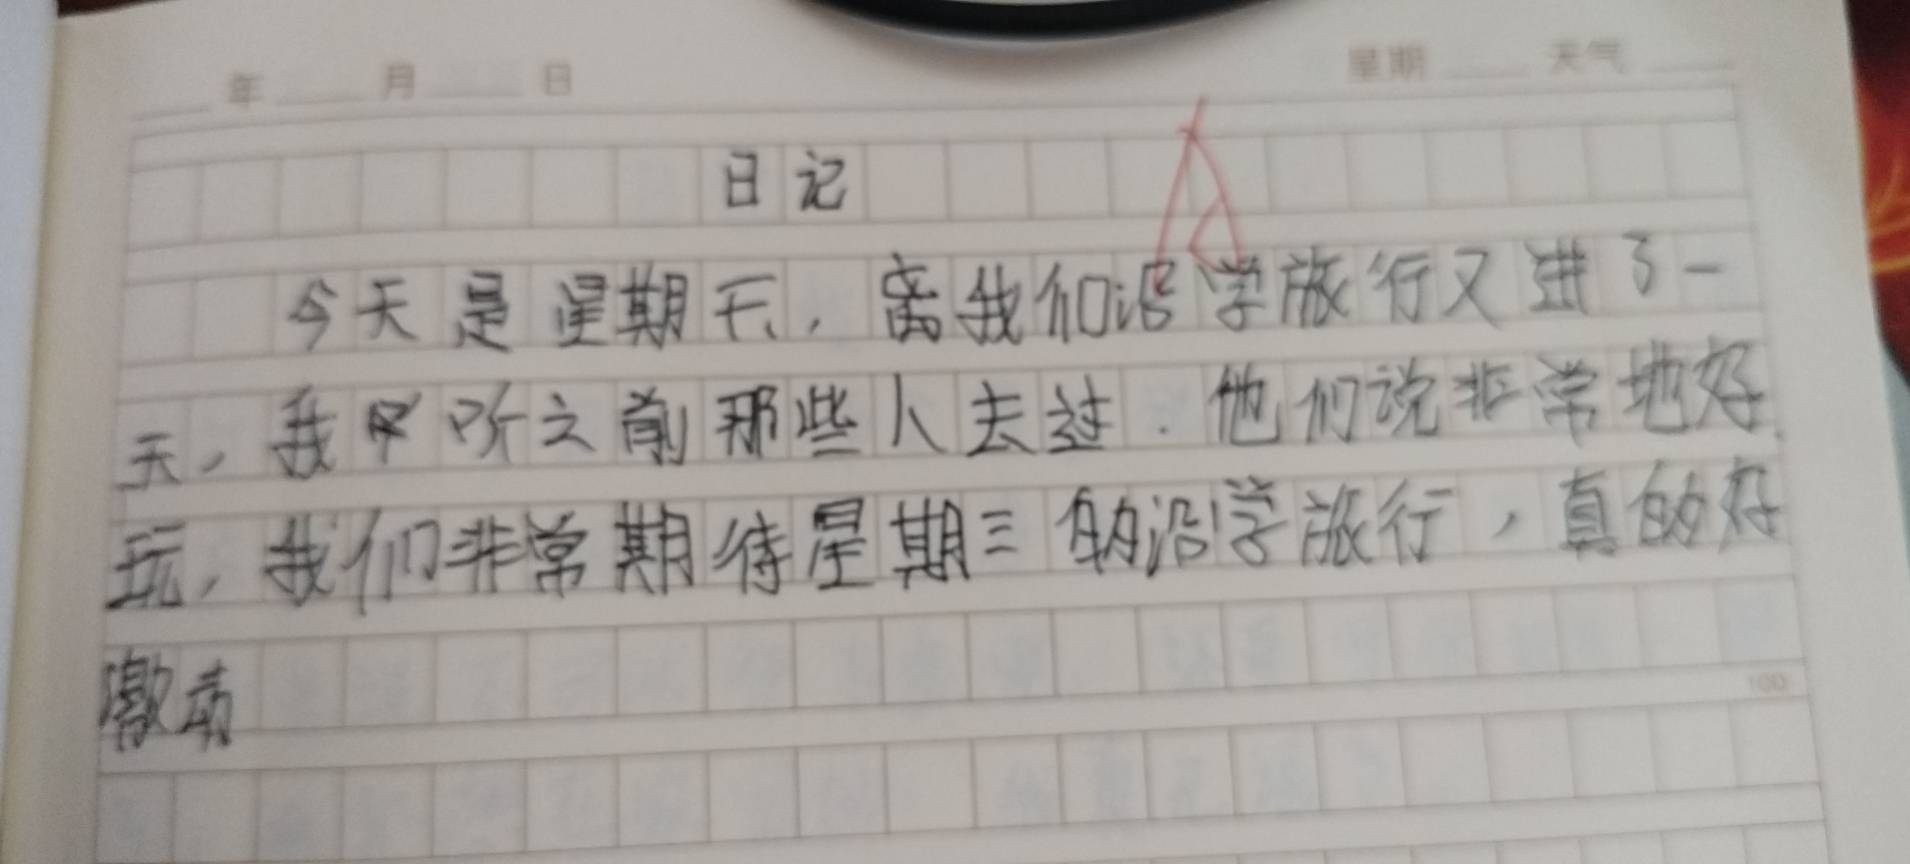 年 月 日 星期 天气
日记
今天是星期天，离我们沿学旅行又进了一
天，我听之前那些人去过．他们说非常地好
玩，我们非常期待星期三的沿学旅行，真的好
激动
100